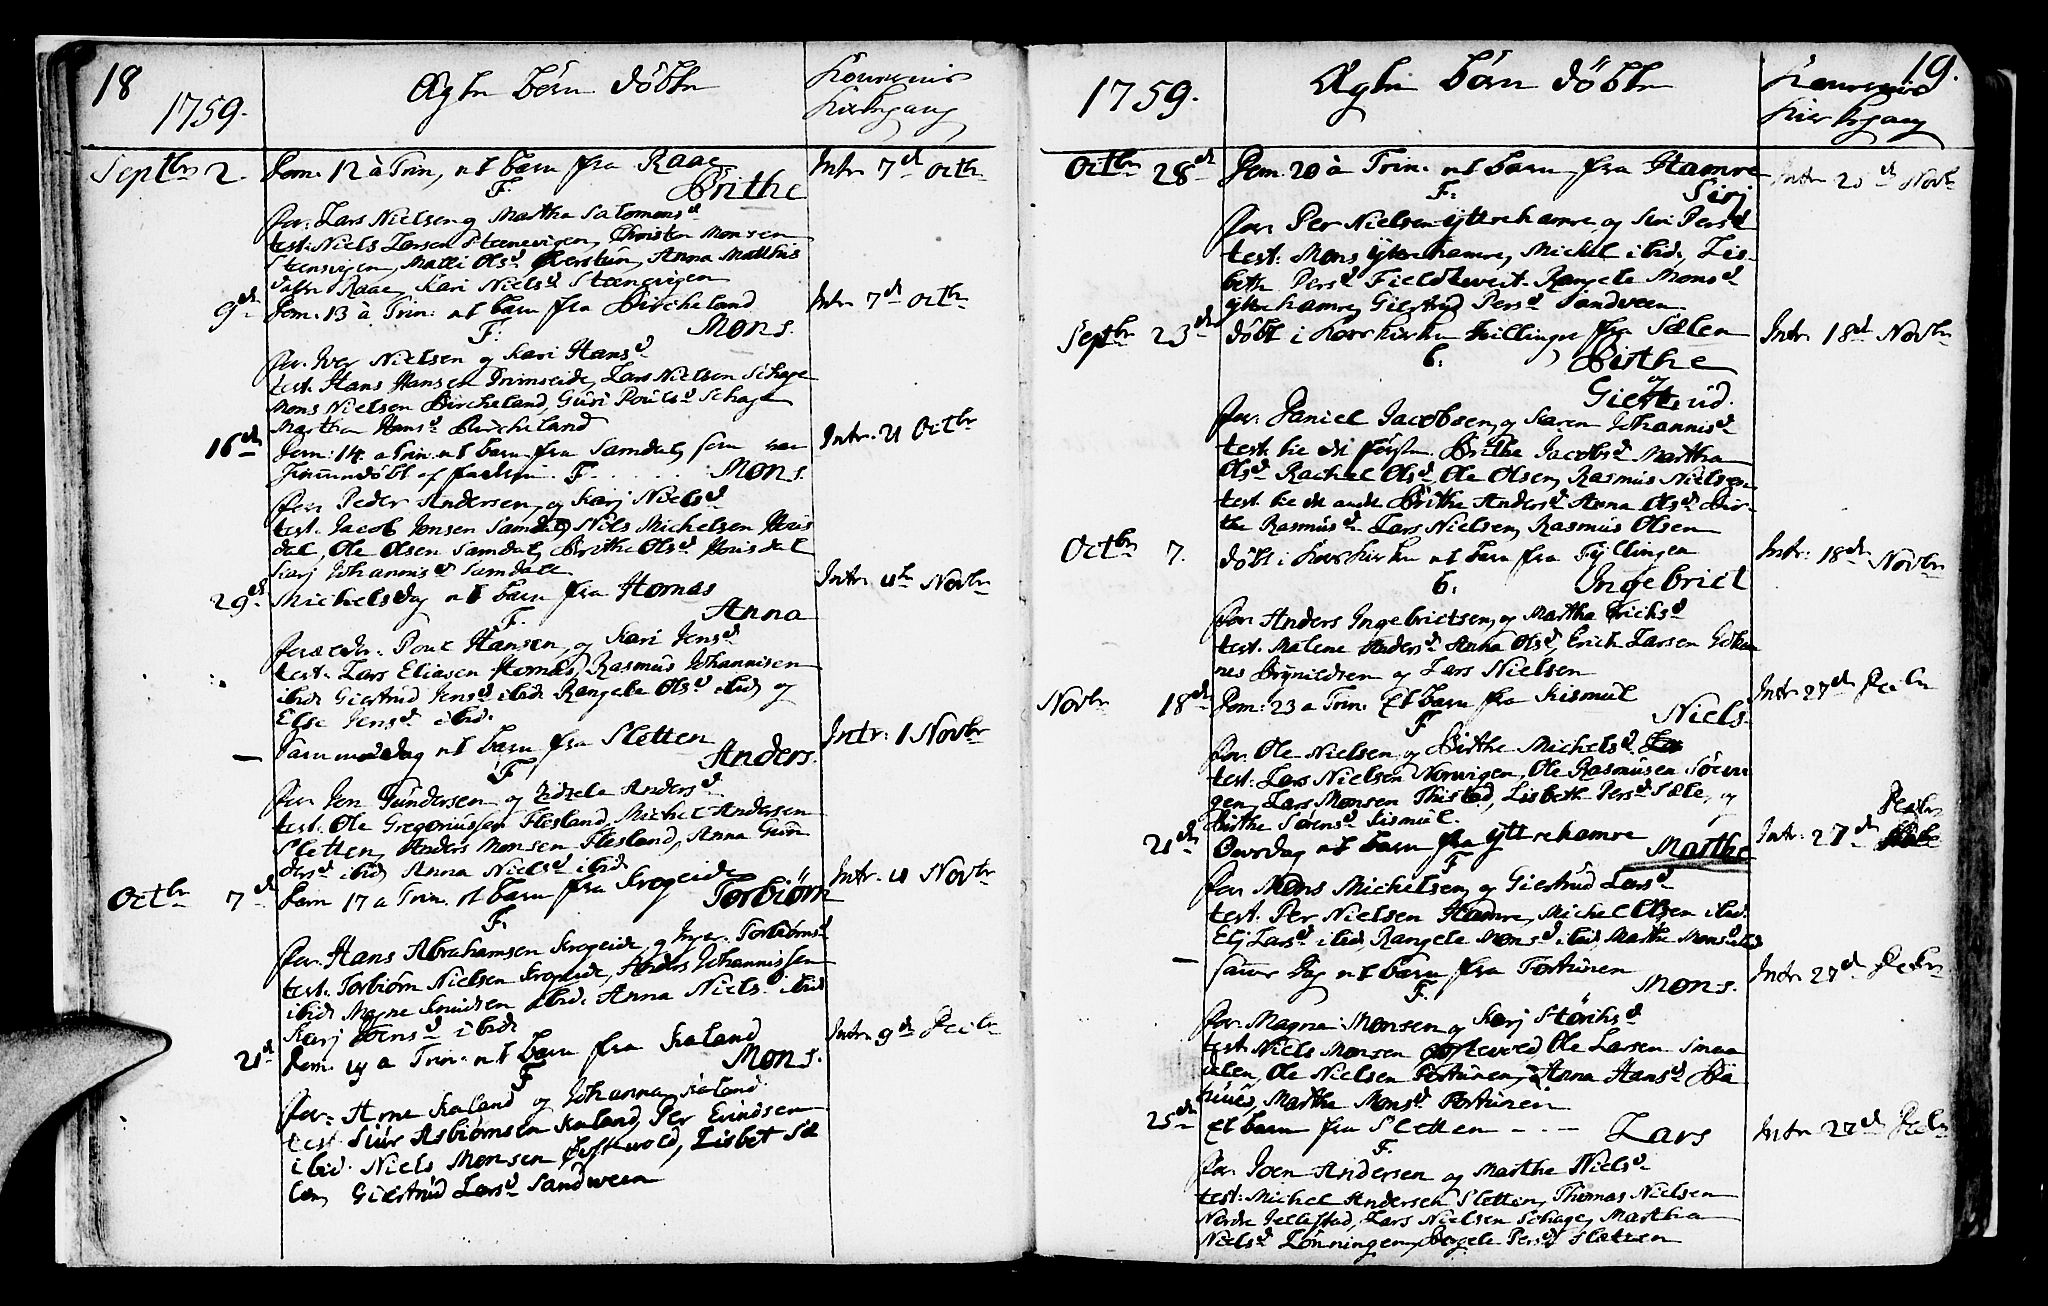 18
1759.
Ægte børn døbte
Konernis
Kirkegang
Septbr 2.
Dom. 12 à Trin, et barn fra Raae
Intr. 7de octbr
F.
Brithe
for: Lars Nielsen og Martha Salomonsd
test: Niels Larsen Steenevigen, Christen Monsen
Steensvigen, Malli Olsd Øverstun, Anna Matthis
dater Raae, Kari Nielsd Steenevigen
9de
Dom. 13 à Trin: et barn fra Bircheland
Intr. 7de octbr
F:
Mons.
for. Iver Nielsen og Kari Hansd
test. Hans Hansen Grimseide, Lars Nielsen Schage
Mons Nielsen Bircheland, Guri Poulsd Schage
Martha Hansd Bircheland
16de
Dom: 14 a Trin. et barn fra Samdal, som var
Intr. 21 Octbr
hiemmedøbt af faderen. F. . . . . Mons.
for Peder Andersen, og Karj Nielsd
test. Jacob Jonsen Samdal, Nils Michelsen
dal, Ole Olsen Samdal, Brithe Olsd
Karj Johannisd Samdal
29de
Michelsdag et barn fra Hornas
Intr. Novbr
F.
Anna
forældr: Poul Hansen, og Kari Jensd
test. Lars Eliasen Hornas, Rasmus Johannisen
ibid Giertrud Jensd ibid Rangele Olsd ibid, og
Else Jensd ibid.
—
Samme dag et barn fra Sletten
Intr: 1 Novbr
F.
Anders.
for Jon Gundersen og Anders d
test. Ole Gregoriussen Flesland, Michel Andersen
Sletten, Anders Monsen Flesland, Anna Gun
dersd ibid Anna Nielsd ibid
Octbr 7de
Dom 17 a Trin. et barn fra Krogeide
Intr. Novbr
F.
Torbiørn
for. Hans Abrahamsen Krogeide, og Inger Torbiørnsd
test. Torbiørn Nielsen Krogeide, Anders Johannissen
ibid Magne Knudsen ibid. Anna Niels. ibid
Karj Joensd ibid
21de
Dom. 19 a Trin. et barn fra Kaland
Intr. 9de Decbr
F
Mons.
for: Arne Kaland og Johanna Kaland.
test Siur Asbiørnsen Kaland, Per Evindsen
ibid. Niels Monsen Lisbet Sæ
len, Giertrud Larsd Sandveen
19.
1759.
Ægte børn døbte
Konernis
Kierkegang
Octbr 28de
Dom. 20 à Trin. et barn fra Hamre
Intr. 25de Novbr
F.
Sirj
for Per Nielsen yttrehamre, og Siri Persd
test: Mons yttrehamre, Michel ibid, Lis-
beth Persd Fieldtvert. Rangele Monsd
yttrehamre, Giertrud Persd Sandveen
Septbr 23de
døbt i Korskirken tvillinger fra Sælen
Intr. 18de Novbr
6.
Birthe
og
Giertrud.
for: Daniel Jacobsen, og Karen Johannisd
test. til de første. Brithe Jacobsd Martha
Olsd Rachel Olsd, Ole Olsen, Rasmus Nielsen
test. til de andre Brithe Andersd Anna Olsd Bir-
the Rasmusd Lars Nielsen, Rasmus Olsen
Octbr 7.
døbt i Korskirken et barn fra Fyllingen
Intr: 18de Novbr
6.
Ingebrict
for Anders Ingebrictsen, og Martha Erichsd
test. Malene Andersd Anna Olsd, Erich Larsen Johan
nes Brynildsen og Lars Nielsen
Novbr 18de
Dom: 23 a Trin. Et barn fra Kismul
Intr 27de Decbr
F
Niels.
for Ole Nielsen og Birthe Michelsd.
test: Lars Nielsen Norvigen, Ole Rasmusen
gen, Lars Monsen Thisted, Lisbeth Persd Sæle, og
Birthe Sørensd Kismul.
21de
Onsdag et barn fra yttrehamre
Intr: 27de Decbr
F
Marthe
for Mons Michelsen, og Giertrud Larsd
test. Per Nielsen Hamre, Michel Olsen ibid.
Elj Larsd ibid, Rangele Monsd ibid, Marthe Monsd ibid
—
samme Dag et barn fra Fortunen
Intr. 27de Decbr
F.
Mons.
for. Magne Monsen og Karj
test. Niels Monsen Ole Larsen Smaa
alen, Ole Nielsen Fortunen, Anna Hansd
Marthe Monsd Fortunen
25de
Et barn fra Sletten - - - Lars
Intr 27de Decbr
F.
for Joen Andersen og Marthe Nielsd
test: Michel Andersen Sletten, Thomas Nielsen
Nordre Jellestad, Lars Nielsen Schage, Martha
Nielsd Lønningen, Persd Sletten